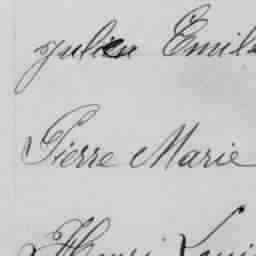 julien Emile
Pierre Marie
Henri Louis